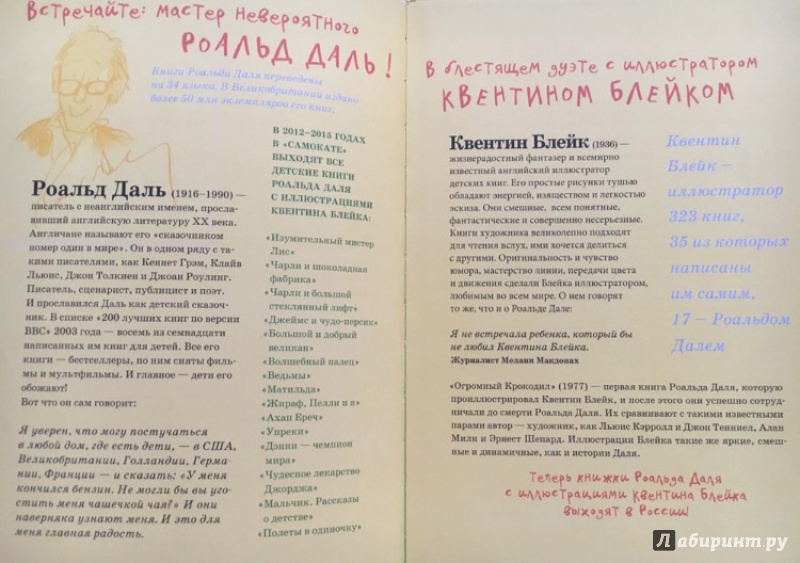 Встречайте: мастер невероятного
РОАЛЬД ДАЛЬ!
Книги Роальда Даля переведены
на 34 языка. В Великобритании издано
более 50 млн экземпляров его книг.
Роальд Даль (1916–1990) —
писатель с неанглийским именем, просла-
вивший английскую литературу XX века.
Англичане называют его «сказочником
номер один в мире». Он в одном ряду с та-
кими писателями, как Кеннет Грэм, Клайв
Льюис, Джон Толкиен и Джоан Роулинг.
Писатель, сценарист, публицист и поэт.
И прославился Даль как детский сказоч-
ник. В списке «200 лучших книг по версии
BBC» 2003 года — восемь из семнадцати
написанных им книг для детей. Все его
книги — бестселлеры, по ним сняты филь-
мы и мультфильмы. И главное — дети его
обожают!
Вот что он сам говорит:
Я уверен, что могу постучаться
в любой дом, где есть дети, — в США,
Великобритании, Голландии, Герма-
нии, Франции — и сказать: «У меня
кончился бензин. Не могли бы вы уго-
стить меня чашечкой чая?» И они
наверняка узнают меня. И это для
меня главная радость.
В 2012–2015 ГОДАХ
В «САМОКАТЕ»
ВЫХОДЯТ ВСЕ
ДЕТСКИЕ КНИГИ
РОАЛЬДА ДАЛЯ
С ИЛЛЮСТРАЦИЯМИ
КВЕНТИНА БЛЕЙКА:
«Изумительный мистер
Лис»
«Чарли и шоколадная
фабрика»
«Чарли и большой
стеклянный лифт»
«Джеймс и чудо-персик»
«Большой и добрый
великан»
«Волшебный палец»
«Ведьмы»
«Матильда»
«Жираф, Пелли и я»
«Ахап Ереч»
«Упреки»
«Дэнни — чемпион
мира»
«Чудесное лекарство
Джорджа»
«Мальчик. Рассказы
о детстве»
«Полеты в одиночку»
В блестящем дуэте с иллюстратором
КВЕНТИНОМ БЛЕЙКОМ
Квентин Блейк (1936) —
жизнерадостный фантазер и всемирно
известный английский иллюстратор
детских книг. Его простые рисунки тушью
обладают энергией, изяществом и легкостью
эскиза. Они смешные, всем понятные,
фантастические и совершенно несерьезные.
Книги художника великолепно подходят
для чтения вслух, ими хочется делиться
с другими. Оригинальность и чувство
юмора, мастерство линии, передачи цвета
и движения сделали Блейка иллюстратором,
любимым во всем мире. О нем говорят
то же, что и о Роальде Дале:
Я не встречала ребенка, который бы
не любил Квентина Блейка.
Журналист Мелани Макдонах
Квентин
Блейк —
иллюстратор
323 книг,
35 из которых
написаны
им самим,
17 — Роальдом
Далем
«Огромный Крокодил» (1977) — первая книга Роальда Даля, которую
проиллюстрировал Квентин Блейк, и после этого они успешно сотруд-
ничали до смерти Роальда Даля. Их сравнивают с такими известными
парами автор — художник, как Льюис Кэрролл и Джон Тенниел, Алан
Милн и Эрнест Шепард. Иллюстрации Блейка такие же яркие, смеш-
ные и динамичные, как и истории Даля.
Теперь книжки Роальда Даля
с иллюстрациями Квентина Блейка
выходят в России!
Лабиринт.ру